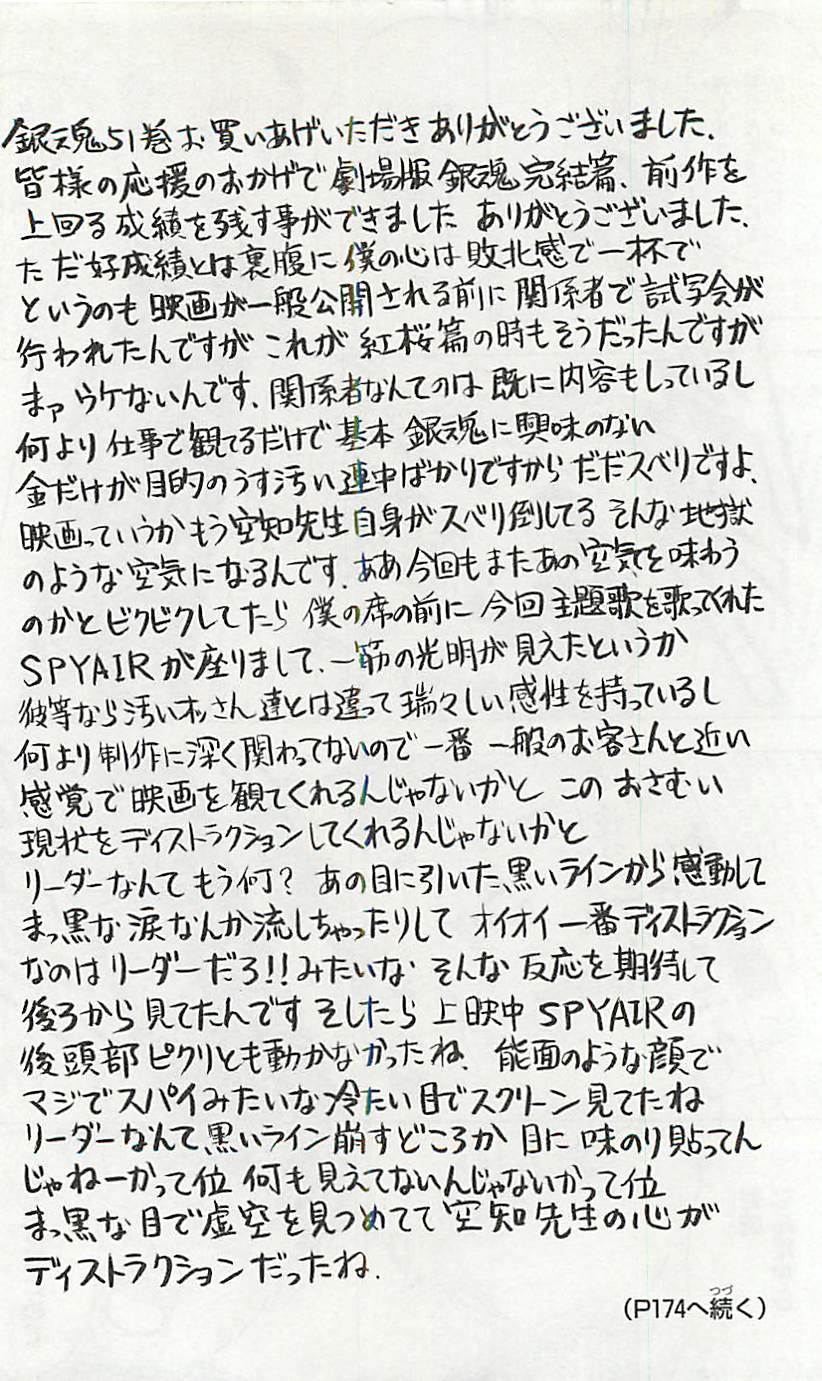 銀魂51巻お買いあげいただきありがとうございました.
皆様の応援のおかげで劇場版 銀魂 完結篇、前作を
上回る成績を残す事ができました ありがとうございました.
ただ好成績とは裏腹に 僕の心は敗北感で一杯で
というのも 映画が一般公開される前に関係者で試写会が
行われたんですが これが 紅桜篇の時もそうだったんですが
まァ ウケないんです、関係者なんてのは 既に内容もしっているし
何より 仕事で観てるだけで 基本 銀魂に興味のない
金だけが目的のうす汚い連中ばかりですから だだスベりですよ.
映画っていうか もう空知先生自身がスベり倒してる そんな地獄
のような空気になるんです. ああ今回もまたあの空気を味わう
のかとビクビクしてたら 僕の席の前に 今回 主題歌を歌ってくれた
SPYAIRが座りまして、一筋の光明が見えたというか
彼等なら汚いオッさん達とは違って 瑞々しい感性を持っているし
何より 制作に深く関わってないので 一番 一般のお客さんと近い
感覚で映画を観てくれるんじゃないかと このおさむい
現状をディストラクションしてくれるんじゃないかと
リーダーなんて もう何? あの目に引いた黒いラインから感動して
まっ黒な涙なんか流しちゃったりして オイオイ一番ディストラクション
なのはリーダーだろ!!みたいな そんな反応を期待して
後ろから見てたんです そしたら 上映中 SPYAIRの
後頭部 ピクリとも動かなかったね. 能面のような顔で
マジでスパイみたいな冷たい目でスクリーン見てたね
リーダーなんて黒いライン崩すどころか 目に味のり貼ってん
じゃねーかって位 何も見えてないんじゃないかって位
まっ黒な目で虚空を見つめてて 空知先生の心が
ディストラクションだったね.
(P174へ続く)
つづ